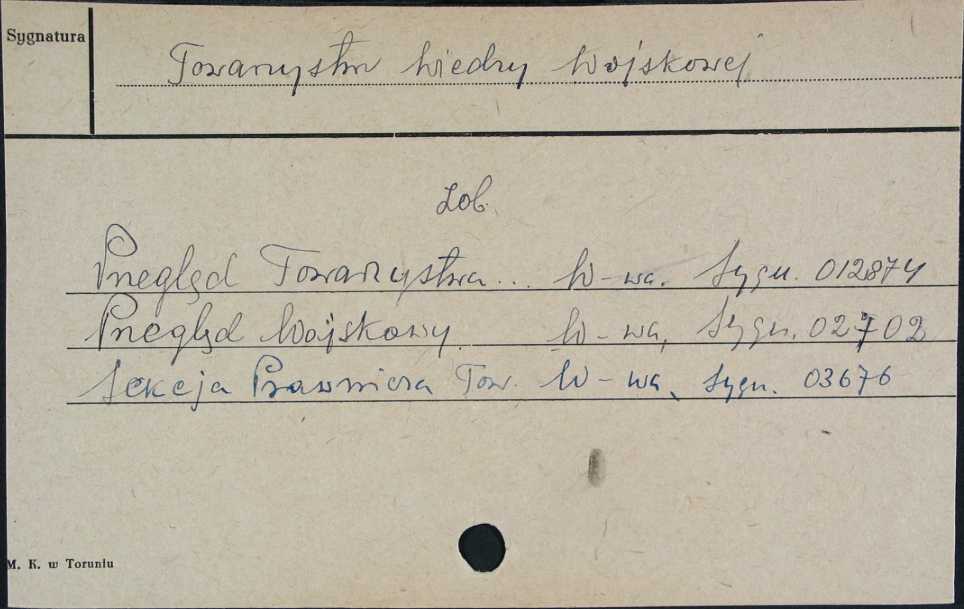 Sygnatura
Towarzystw Wiedzy Wojskowej
Zob.
Przegląd Towarzystwa... W-wa. Sygn. 012874
Przegląd Wojskowy. W-wa, Sygn. 02702
Sekcja Prawnicza Tow. W-wa, Sygn. 03676
M. K. w Toruniu